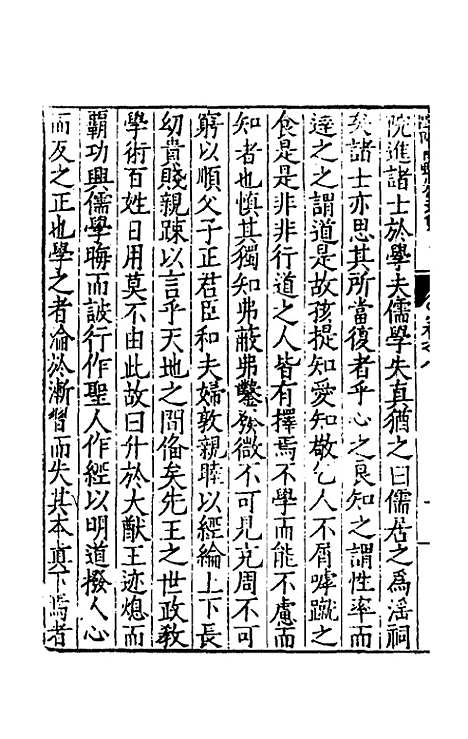 院進諸士於學夫儒學失真猶之曰儒居之為淫祠
矣諸士亦思其所當復者乎心之良知之謂性率而
達之之謂道是故孩提知愛知敬乞人不屑嘑蹴之
食是是非非行道之人皆有擇焉不學而能不慮而
知者也慎其獨知弗蔽弗鑿發微不可見充周不可
窮以順父子正君臣和夫婦敦親睦以經綸上下長
幼貴賤親踈以言乎天地之間俻矣先王之世政敎
學術百姓日用莫不由此故曰升於大猷王迹熄而
覇功興儒學晦而詖行作聖人作經以明道撥人心
而反之正也學之者淪於漸習而失其本真下焉者